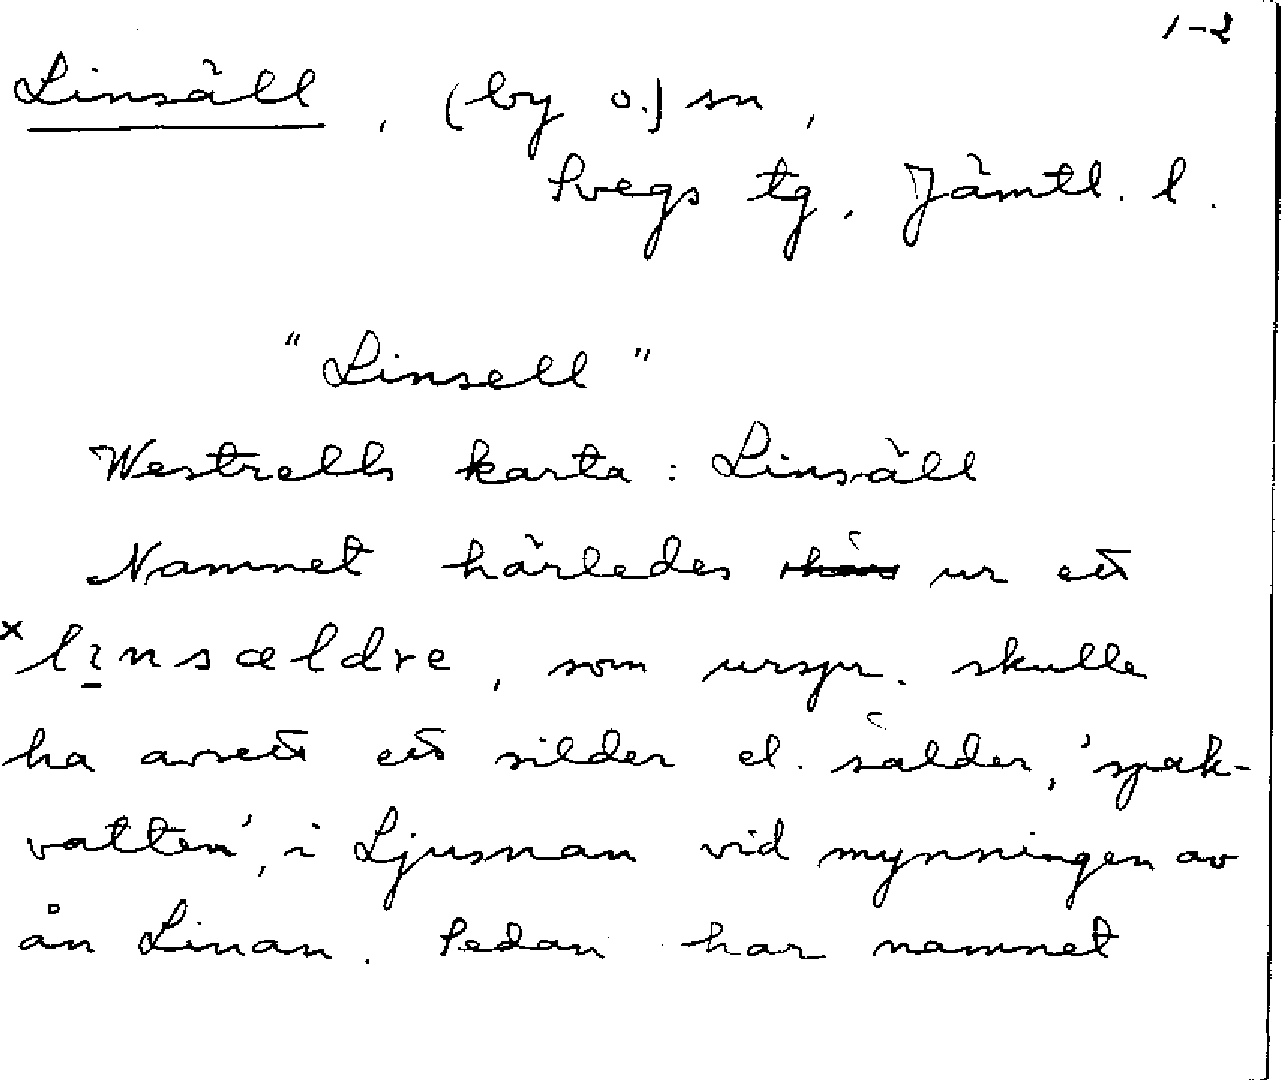 1-2
Linsäll, (by o.) sn,
Svegs tg. Jämtl. l.
"Linsell"
Westrells karta: Linsäll
Namnet härledes ur ett
*līnsældre, som urspr. skulle
ha avsett ett silder el. sälder, 'spak-
vatten', i Ljusnan vid mynningen av
ån Linan. Sedan har namnet